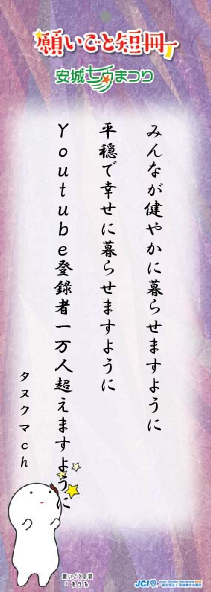 願いごと短冊
安城七夕まつり
みんなが健やかに暮らせますように
平穏で幸せに暮らせますように
Youtube登録者一万人超えますように
タヌクマch
JCI